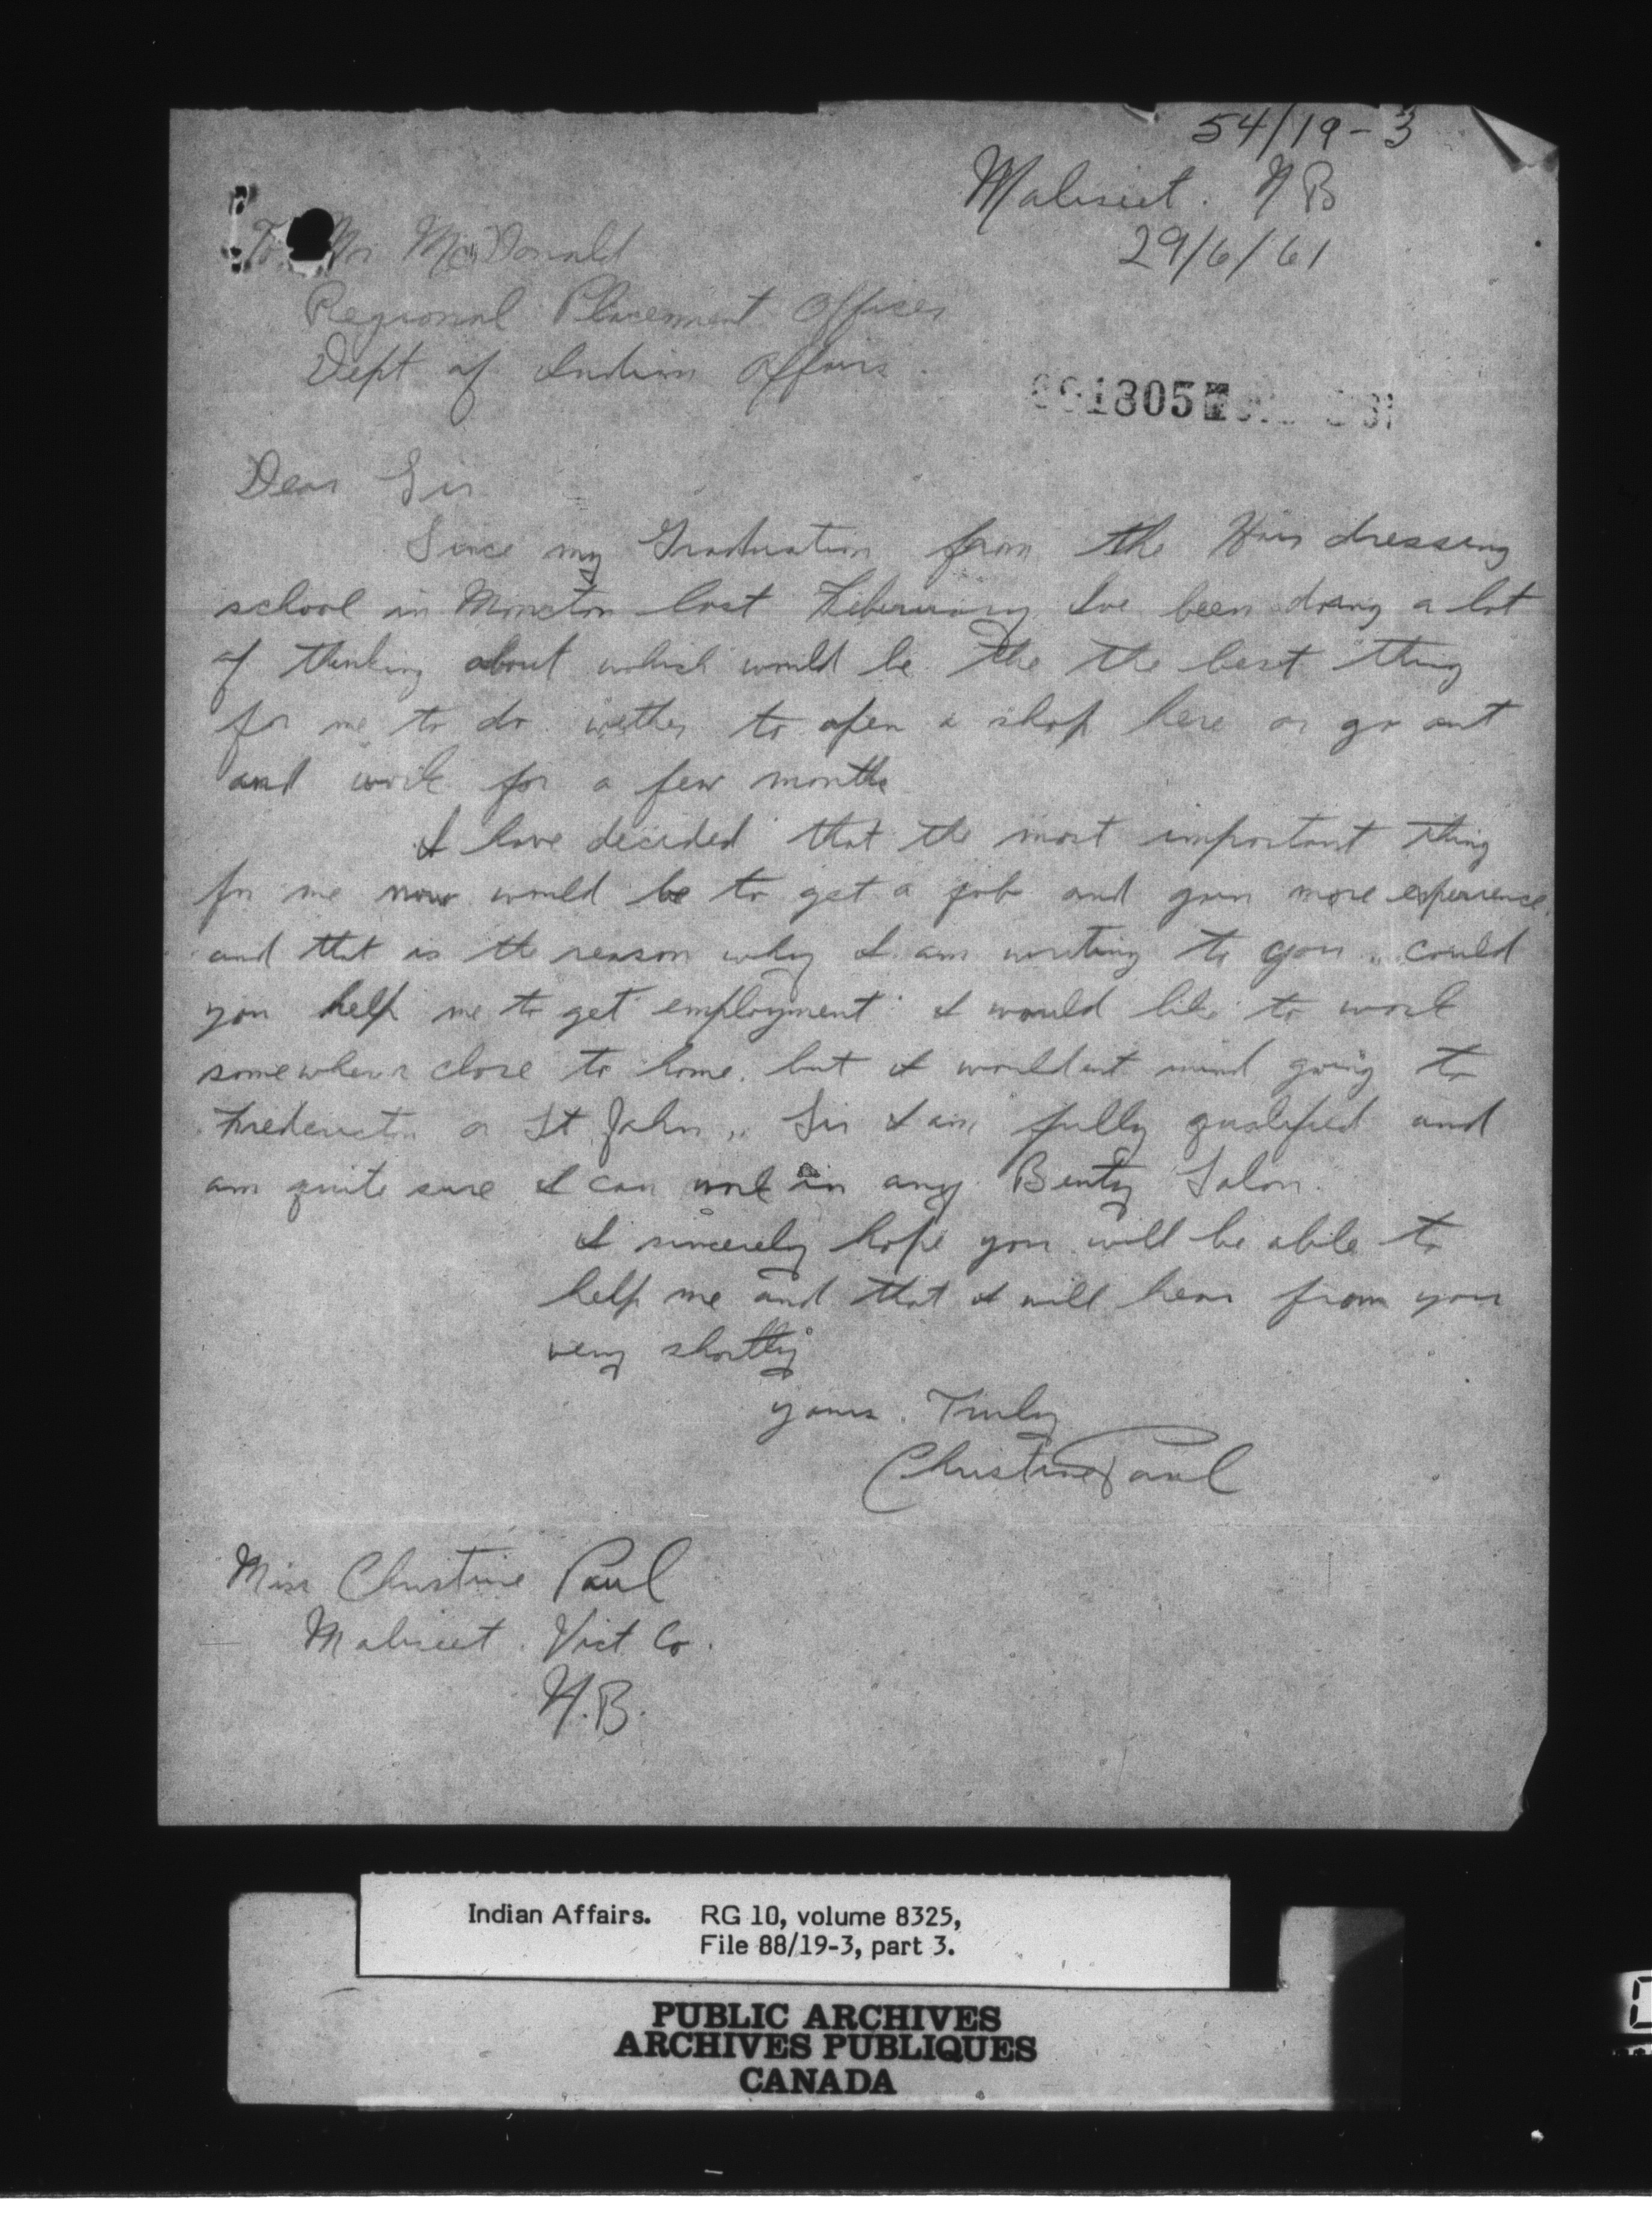 54/19-3
Maliseet. N B
29/6/61
To Mr McDonald
Regional Placement Officer
Dept of Indian Affairs.
1305
Dear Sir
Since my Graduation from the Hair dressing
school in Moncton last Feberuary Ive been doing a lot
of thinking about which would be the the best thing
for me to do. wether to open a shop here or go out
and work for a few months
I have decided that the most important thing
for me now would be to get a job and gain more experience.
and that is the reason why I am writing to you.. could
you help me to get employment I would like to work
somewhere close to home. but I wouldent mind going to
Fredericton or St John.. Sir I am fully qualified and
am quite sure I can work in any Beuty Salon.
I sincerely hope you will be able to
help me and that I will hear from you
very shortly
yours. Truly
Christine Paul
Miss Christine Paul
Maliseet. Vict Co.
N.B.
Indian Affairs. RG 10, volume 8325,
File 88/19-3, part 3.
PUBLIC ARCHIVES
ARCHIVES PUBLIQUES
CANADA